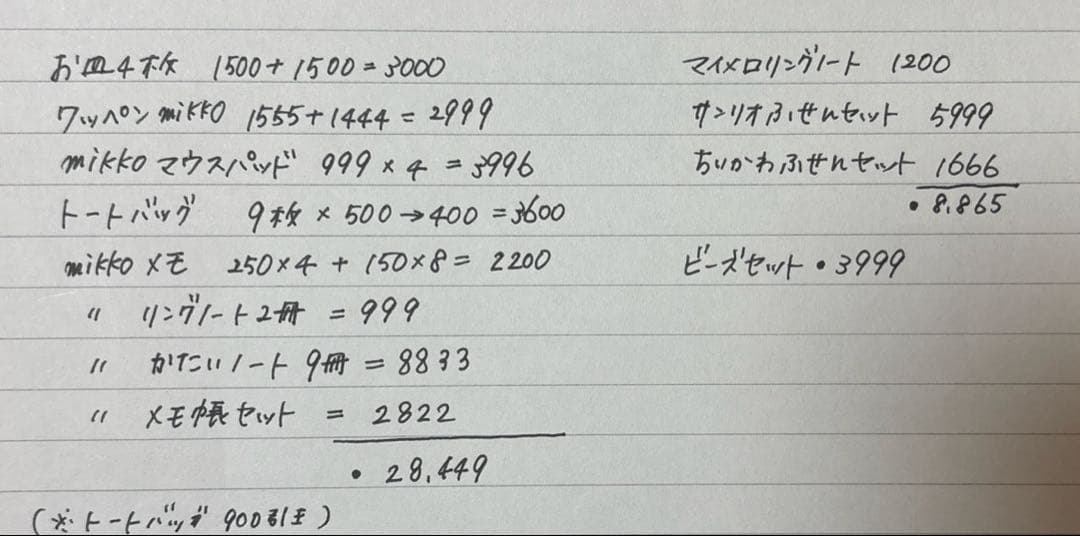 お皿4枚 1500+1500=3000
ワッペンmikko 1555+1444=2999
mikkoマウスパッド 999×4=3996
トートバッグ 9枚×500→400=3600
mikkoメモ 250×4+150×8=2200
〃 リングノート2冊=999
〃 かたいノート9冊=8833
〃 メモ帳セット=2822
・28,449
(※トートバッグ900引き)
マイメロリングノート 1200
サンリオふせんセット 5999
ちいかわふせんセット 1666
・8,865
ビーズセット・3999